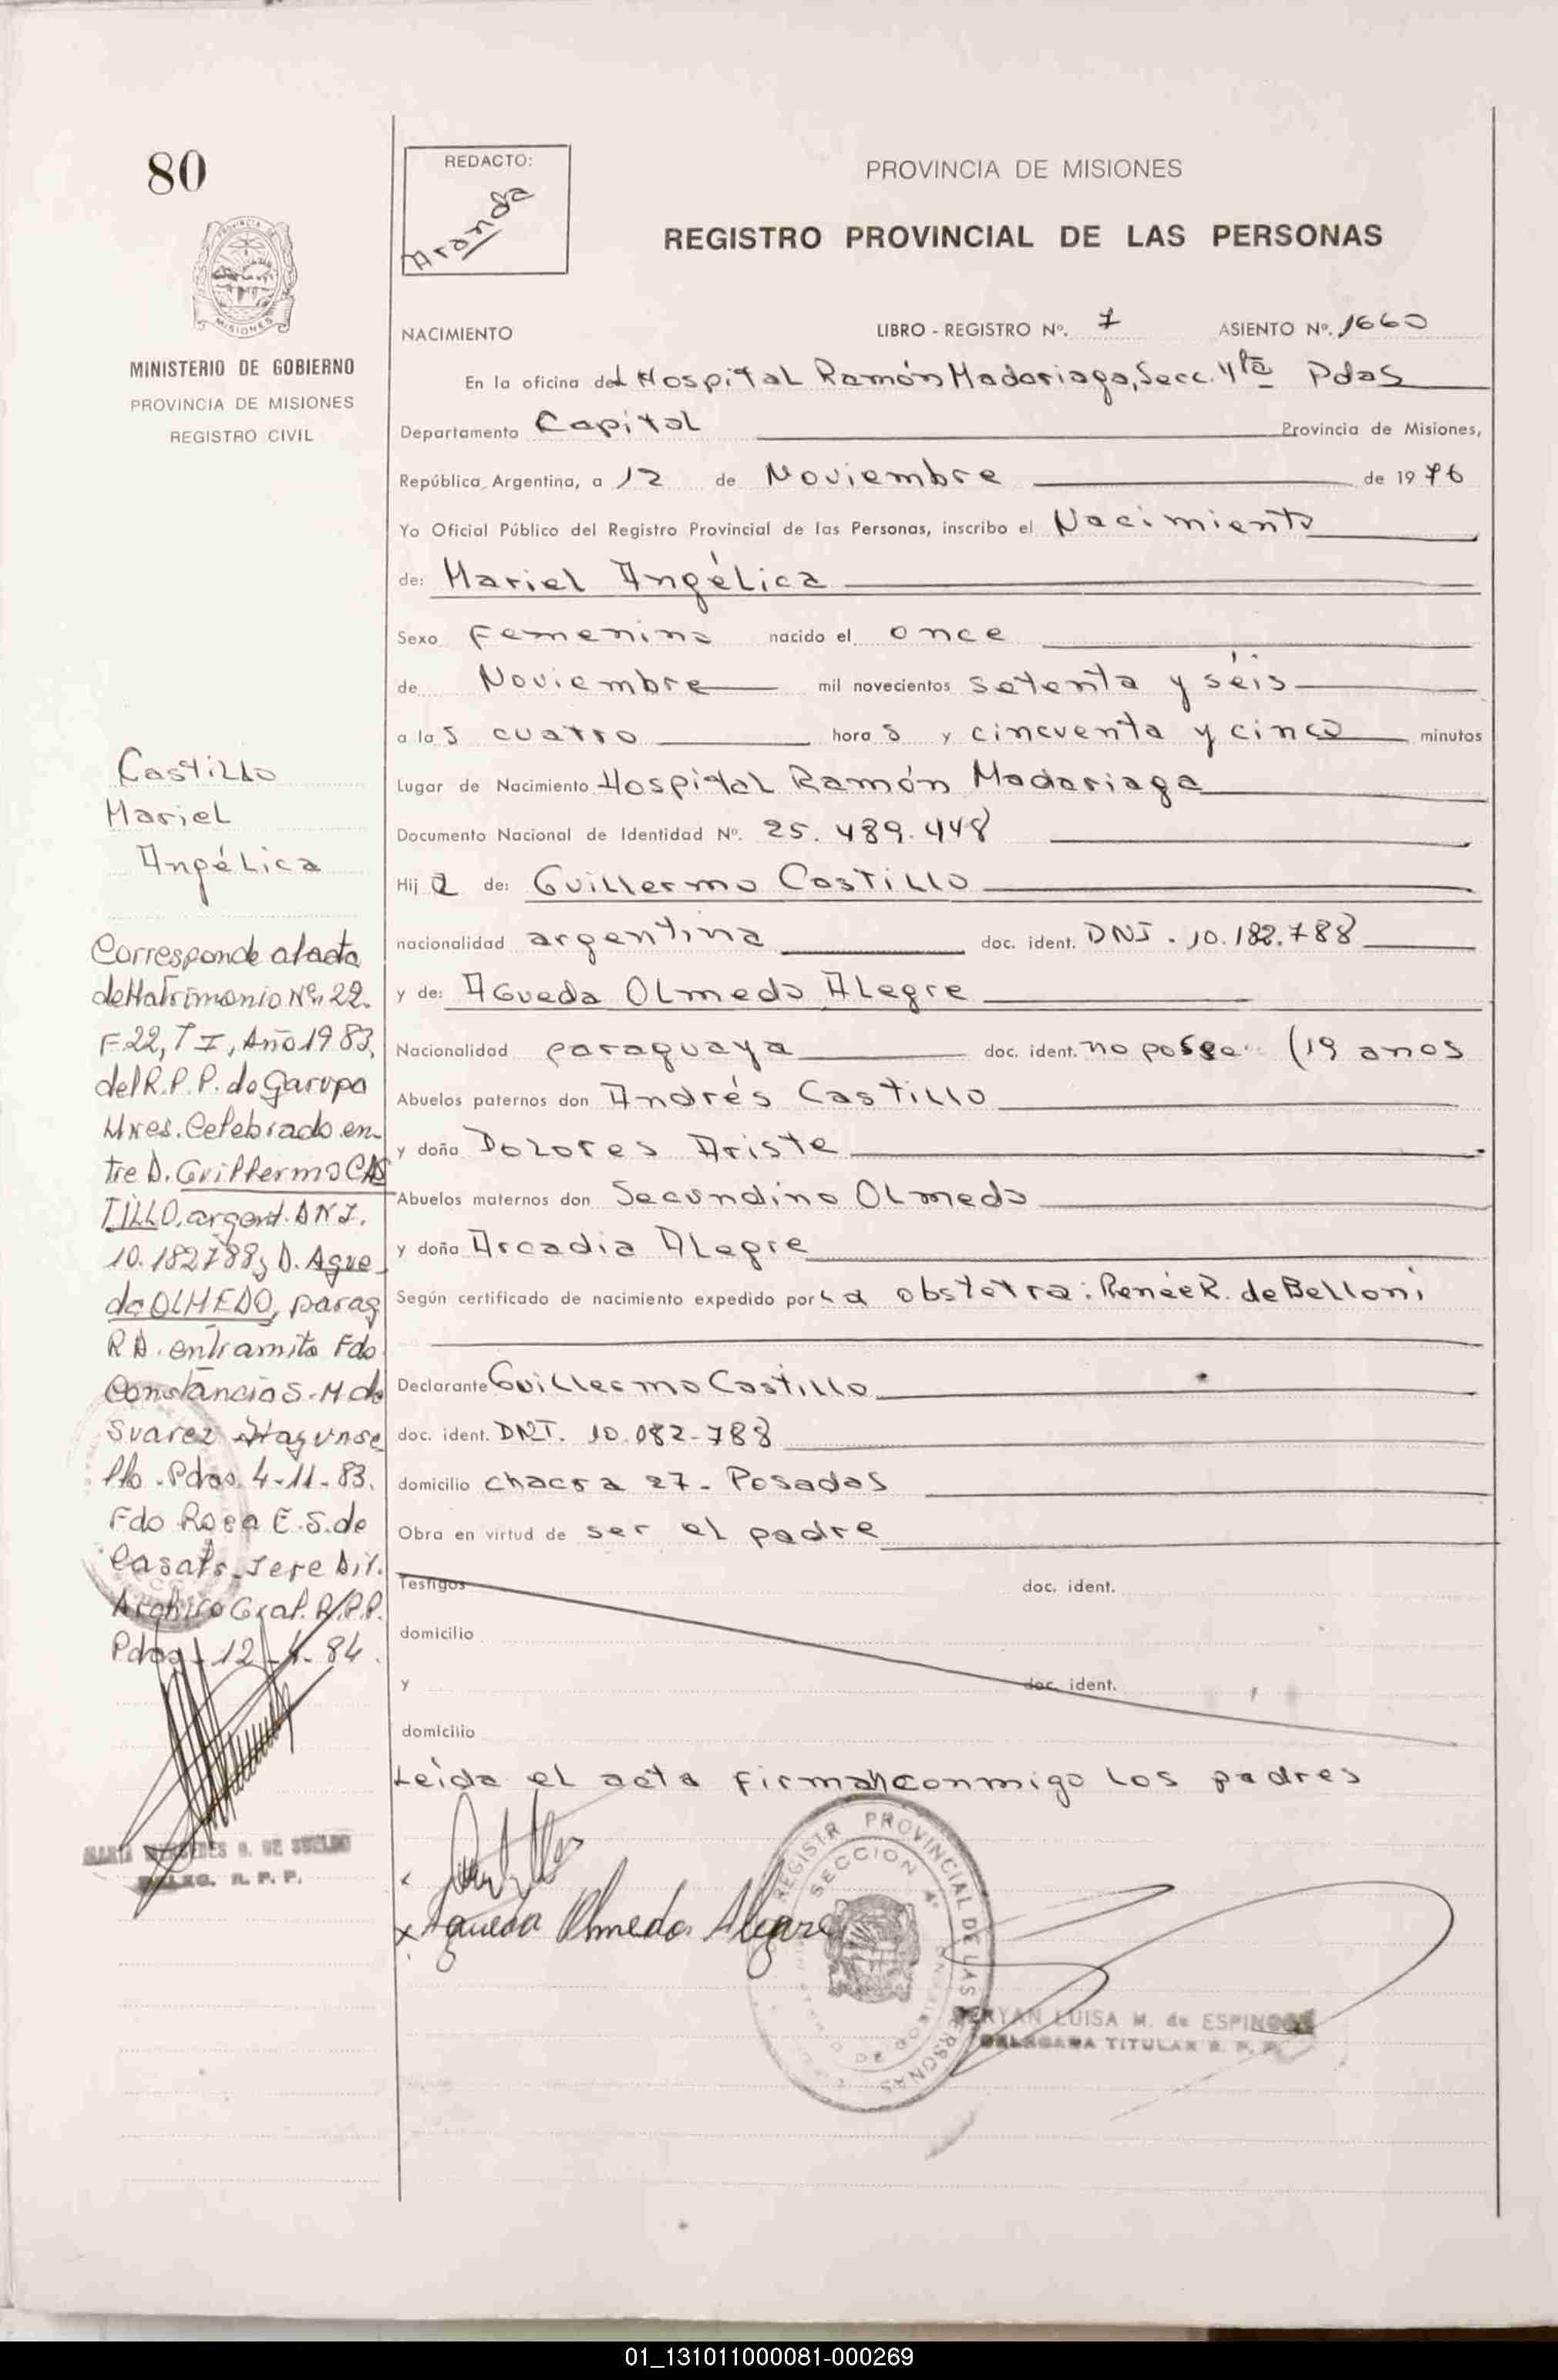 80
REDACTO:
Aranda
PROVINCIA DE MISIONES
REGISTRO PROVINCIAL DE LAS PERSONAS
MISIONES
MINISTERIO DE GOBIERNO
PROVINCIA DE MISIONES
REGISTRO CIVIL
NACIMIENTO LIBRO - REGISTRO Nº. 7 ASIENTO Nº. 1660
En la oficina del Hospital Ramón Madariaga, Secc. 4ta Pdas
Departamento Capital Provincia de Misiones,
República Argentina, a 12 de Noviembre de 1976
Yo Oficial Público del Registro Provincial de las Personas, inscribo el Nacimiento
de: Mariel Angélica
Sexo Femenino nacido el once
de Noviembre mil novecientos setenta y séis
a las cuatro horas y cincuenta y cinco minutos
Lugar de Nacimiento Hospital Ramón Madariaga
Documento Nacional de Identidad Nº. 25.489.448
Hija de: Guillermo Castillo
nacionalidad argentina doc. ident. DNI. 10.182.788
y de: Agueda Olmedo Alegre
Nacionalidad paraguaya doc. ident. no posee (19 anos
Abuelos paternos don Andrés Castillo
y doña Dolores Ariste
Abuelos maternos don Secundino Olmedo
y doña Arcadia Alegre
Según certificado de nacimiento expedido por La obstetra: Renée R. de Belloni
Declarante Guillermo Castillo
doc. ident. DNI. 10.082-788
domicilio chacra 27- Posadas
Obra en virtud de ser el padre
Testigos doc. ident.
domicilio
y doc. ident.
domicilio
Leida el acta firman conmigo los padres
Agueda Olmedo Alegre
REGISTR PROVINCIAL DE LAS PERSONAS
SECCION 4ª
LUISA M. de ESPINOSA
TITULAR R. P. P.
Castillo
Mariel
Angélica
Corresponde al acta
de Matrimonio Nº 22.
F 22, T I, Año 1983,
del R.P.P. de Garupa
Mnes. Celebrado en-
tre D. Guillermo CAS
TILLO, argent. DNI.
10.182788 y D. Ague-
da OLMEDO, parag
R D. entramite Fdo
Constancia S. M de
Suarez
Pdas. 4-11-83.
Fdo Rosa E. S. de
Casals Jefe Div.
Archivo Gral. R.P.P.
Pdas 12-4-84.
R. P. P.
01_131011000081-000269